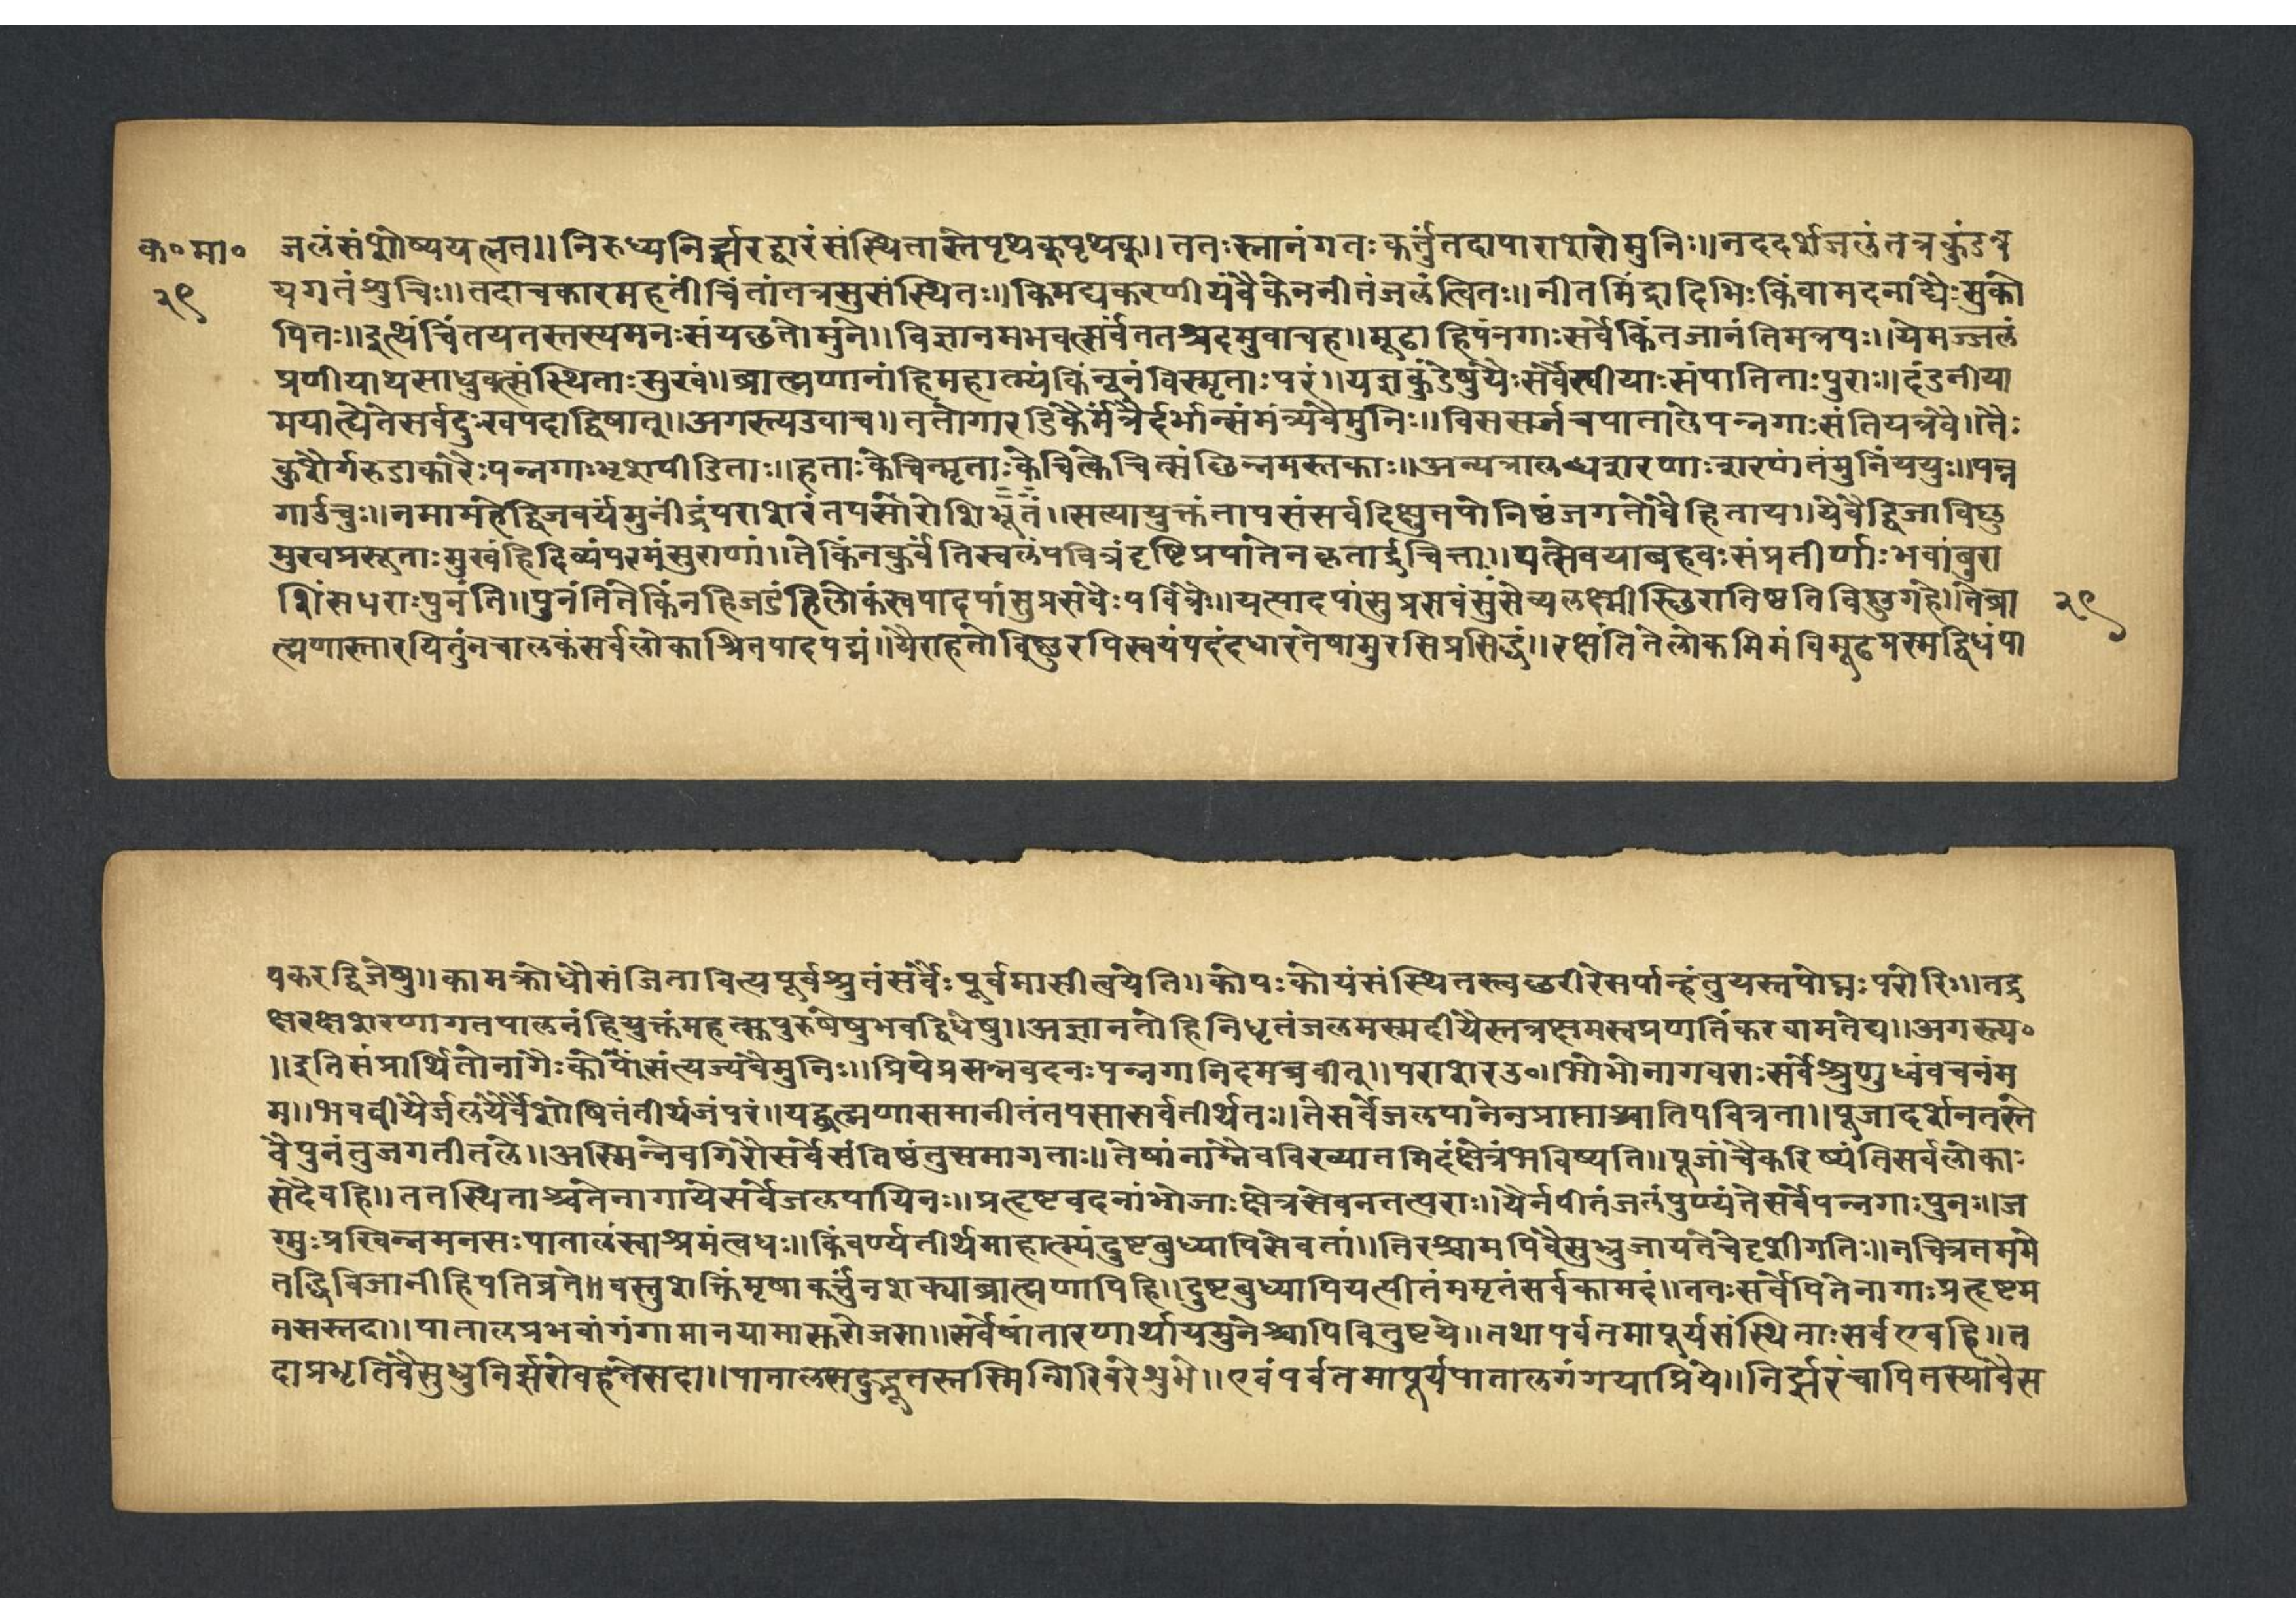 क०मा० जलंसंशोष्ययत्नत॥निरुध्यनिर्झरद्वारंसंस्थितास्तेपृथक्पृथक्॥ततःस्नानंगतःकर्तुंतदापाराशरोमुनिः॥नददर्शजलंतत्रकुंडत्र
२९ यगतंशुचिः॥तदाचकारमहतींचिंतांतत्रसुसंस्थितः॥किमद्यकरणीयंवैकेननीतंजलंत्वितः॥नीतमिंद्रादिभिःकिंवामदनाद्यैःसुको
पितः॥इत्थंचिंतयतस्तस्यमनःसंयछतोमुने॥विज्ञानमभवत्सर्वंततश्चदमुवाचह॥मूढाहिपंनगाःसर्वेकिंनजानंतिमत्तपः॥येमज्जलं
प्रणीयाथसाधुवत्संस्थिताःसुखं॥ब्राह्मणानांहिमहात्म्यंकिंनूनंविस्मृताःपरं॥यज्ञकुंडेषुयैःसर्वेस्वीयाःसंपातिताःपुराः॥दंडनीया
मयात्येतेसर्वदुःखपदाद्विषात्॥अगस्त्यउवाच॥ततोगारडिकैर्मंत्रैर्दर्भान्संमंत्र्यवैमुनिः॥विससर्जचपातालेपन्नगाःसंतियत्रवै॥तैः
कुशैर्गरुडाकारैःपन्नगाःभृशपीडिताः॥हताःकेचिन्मृताःकेचित्केचित्संछिन्नमस्तकाः॥अन्यत्रालब्धशरणाःशरणंतंमुनिंययुः॥पन्न
गाऊचुः॥नमामहेद्विजवर्यमुनींद्रंपराशरंतपसोराशिभूतं॥सत्यायुक्तंतापसंसर्वदिक्षुतपोनिष्ठंजगतोवैहिताय॥येवैद्विजाविष्णु
मुखप्रसूताःमुखंहिदिव्यंपरमंसुराणां॥तेकिंनकुर्वंतिस्वलंपवित्रंदृष्टिप्रपातेनकृतार्द्रचित्ताः॥यत्सेवयाबहवःसंप्रतीर्णाःभवांबुरा
शिंसधराःपुनंति॥पुनंतितेकिंनहिजडंहिलोकंस्वपादपांसुप्रसवैःपवित्रैः॥यत्पादपांसुप्रसवंसुसेव्यलक्ष्मीस्छिरातिष्ठतिविष्णुगेहे॥तेब्रा २९
ह्मणास्तारयितुंनचालकंसर्वलोकाश्रितपादपद्मं॥यैराहतोविष्णुरपिस्वयंपदंदधारतेषामुरसिप्रसिद्धं॥रक्षंतितेलोकमिमंविमूढमस्मद्विधंपा
पकरद्विजेषु॥कामक्रोधौसंजितावित्यपूर्वश्रुतंसर्वैःपूर्वमासीत्वयेति॥कोपःकोयंसंस्थितस्त्वछरीरेसर्पान्हंतुयस्तपोघ्नःपरोरिः॥तद्र
क्षरक्षशरणागतपालनंहियुक्तंमहत्सुपुरुषेषुभवद्विधेषु॥अज्ञानतोहिनिधृतंजलमस्मदीयैस्तत्रक्षमस्वप्रणतिंकरवामतेद्य॥अगस्त्य०
॥इतिसंप्रार्थितोनागैःकोपंसंत्यज्यवैमुनिः॥प्रियेप्रसन्नवदनःपन्नगानिदमब्रवीत्॥पराशरउ०॥भोभोनागवराःसर्वेश्रुणुध्वंवचनंम
म॥भवदीयैर्जलंयैर्वैशोषितंतीर्थजंपरं॥यद्ब्रह्मणासमानीतंतपसासर्वतीर्थतः॥तेसर्वेजलपानेनप्राप्ताश्चातिपवित्रता॥पूजादर्शनतस्ते
वैपुनंतुजगतीतले॥अस्मिन्नेवगिरौसर्वेसंतिष्ठंतुसमागताः॥तेषांनाम्नैवविख्यातमिदंक्षेत्रंभविष्यति॥पूजांचैकरिष्यंतिसर्वलोकाः
सदैवहि॥ततस्थिताश्चतेनागायेसर्वेजलपायिनः॥प्रहृष्टवदनांभोजाःक्षेत्रसेवनतत्पराः॥यैर्नपीतंजलंपुण्यंतेसर्वेपन्नगाःपुनः॥ज
ग्मुःप्रखिन्नमनसःपातालंस्वाश्रमंत्वधः॥किंवर्ण्यतीर्थमाहात्म्यंदुष्टबुध्यापिसेवतां॥तिरश्चामपिवैसुभ्रुजायतेचेदृशीगतिः॥नचित्रतममे
तद्धिविजानीहिपतिव्रते॥वस्तुशक्तिंमृषाकर्तुंनशक्याब्राह्मणापिहि॥दुष्टबुध्यापियत्पीतंममृतंसर्वकामदं॥ततःसर्वेपितेनागाःप्रहृष्टम
नसस्तदा॥पातालप्रभवांगंगामानयामासुरोजसा॥सर्वेषांतारणार्थायमुनेश्चापिवितुष्टये॥तथापर्वतमापूर्यसंस्थिताःसर्वएवहि॥त
दाप्रभृतिवैसुभ्रुनिर्झरोवहतेसदा॥पातालसमुद्भूतस्तस्मिन्गिरिवरेशुभे॥एवंपर्वतमापूर्यपातालगंगयाप्रिये॥निर्झरंचापितस्यावैस